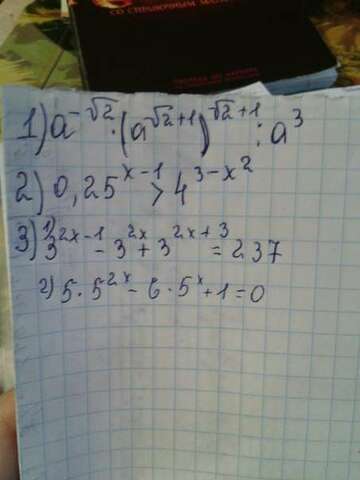 СО СПРАВОЧНЫМ
1) a^{-√2} · (a^{√2+1})^{√2+1} : a^3
2) 0,25^{x-1} > 4^{3-x^2}
3) 1) 3^{2x-1} - 3^{2x} + 3^{2x+3} = 237
2) 5 · 5^{2x} - 6 · 5^x + 1 = 0